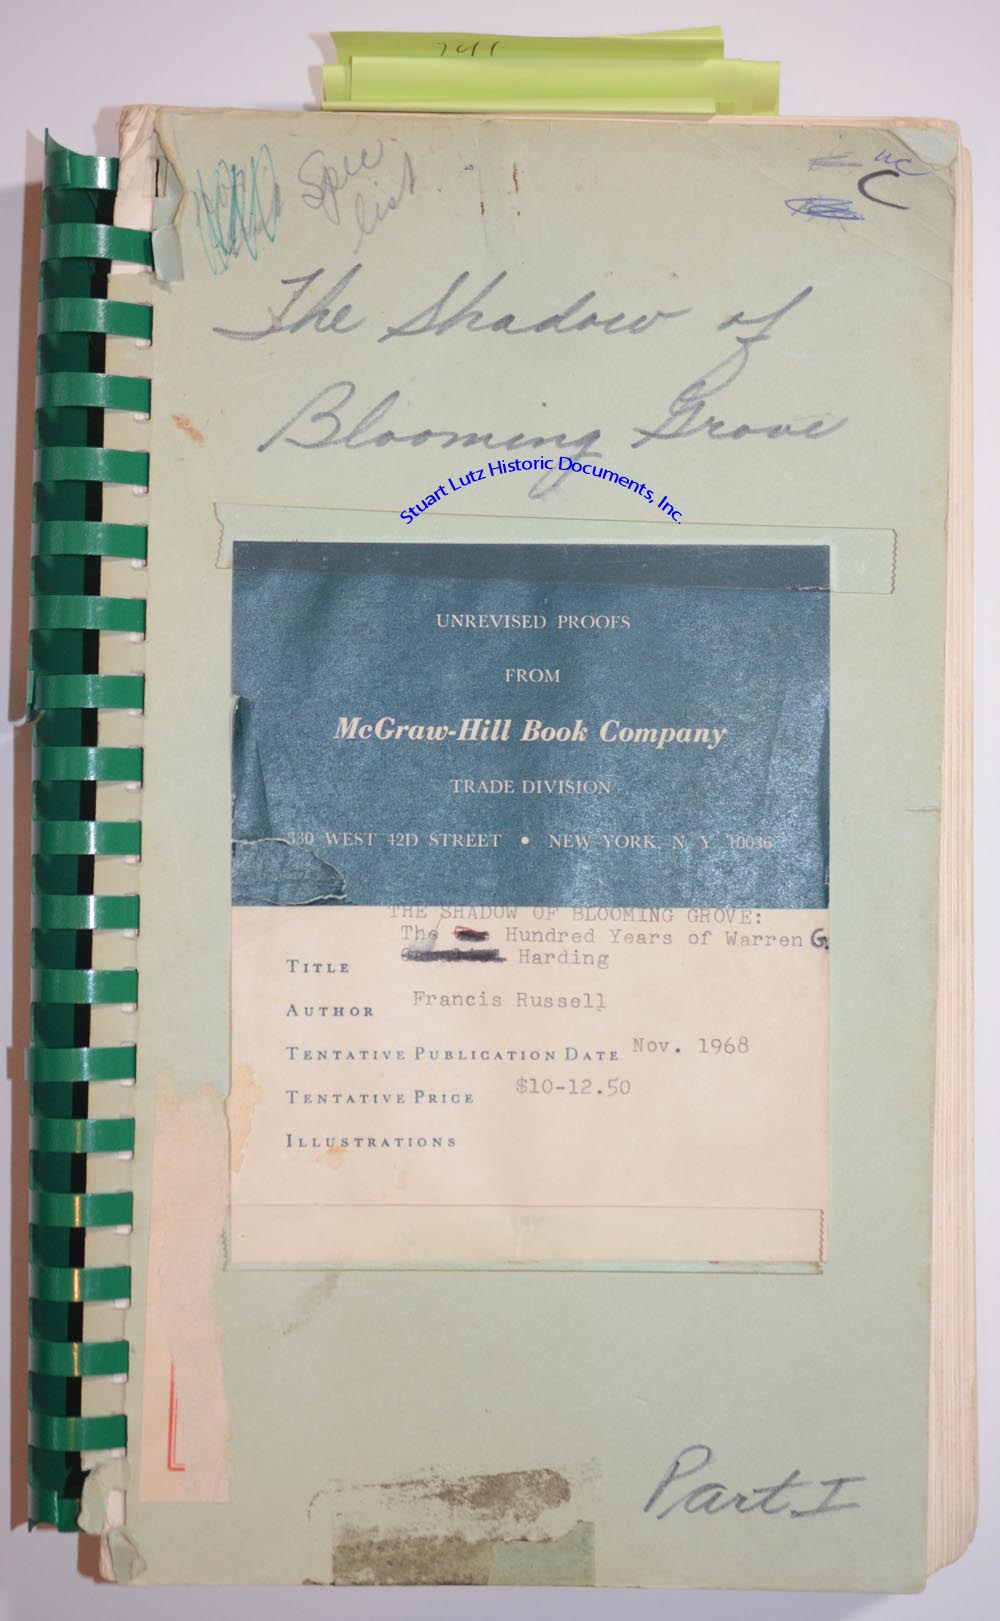 Spec
list
C
The Shadow of
Blooming Grove
Stuart Lutz Historic Documents, Inc.
UNREVISED PROOFS
FROM
McGraw-Hill Book Company
TRADE DIVISION
330 WEST 42D STREET • NEW YORK, N. Y. 10036
THE SHADOW OF BLOOMING GROVE:
The Hundred Years of Warren G.
Harding
TITLE
AUTHOR Francis Russell
TENTATIVE PUBLICATION DATE Nov. 1968
TENTATIVE PRICE $10-12.50
ILLUSTRATIONS
Part I